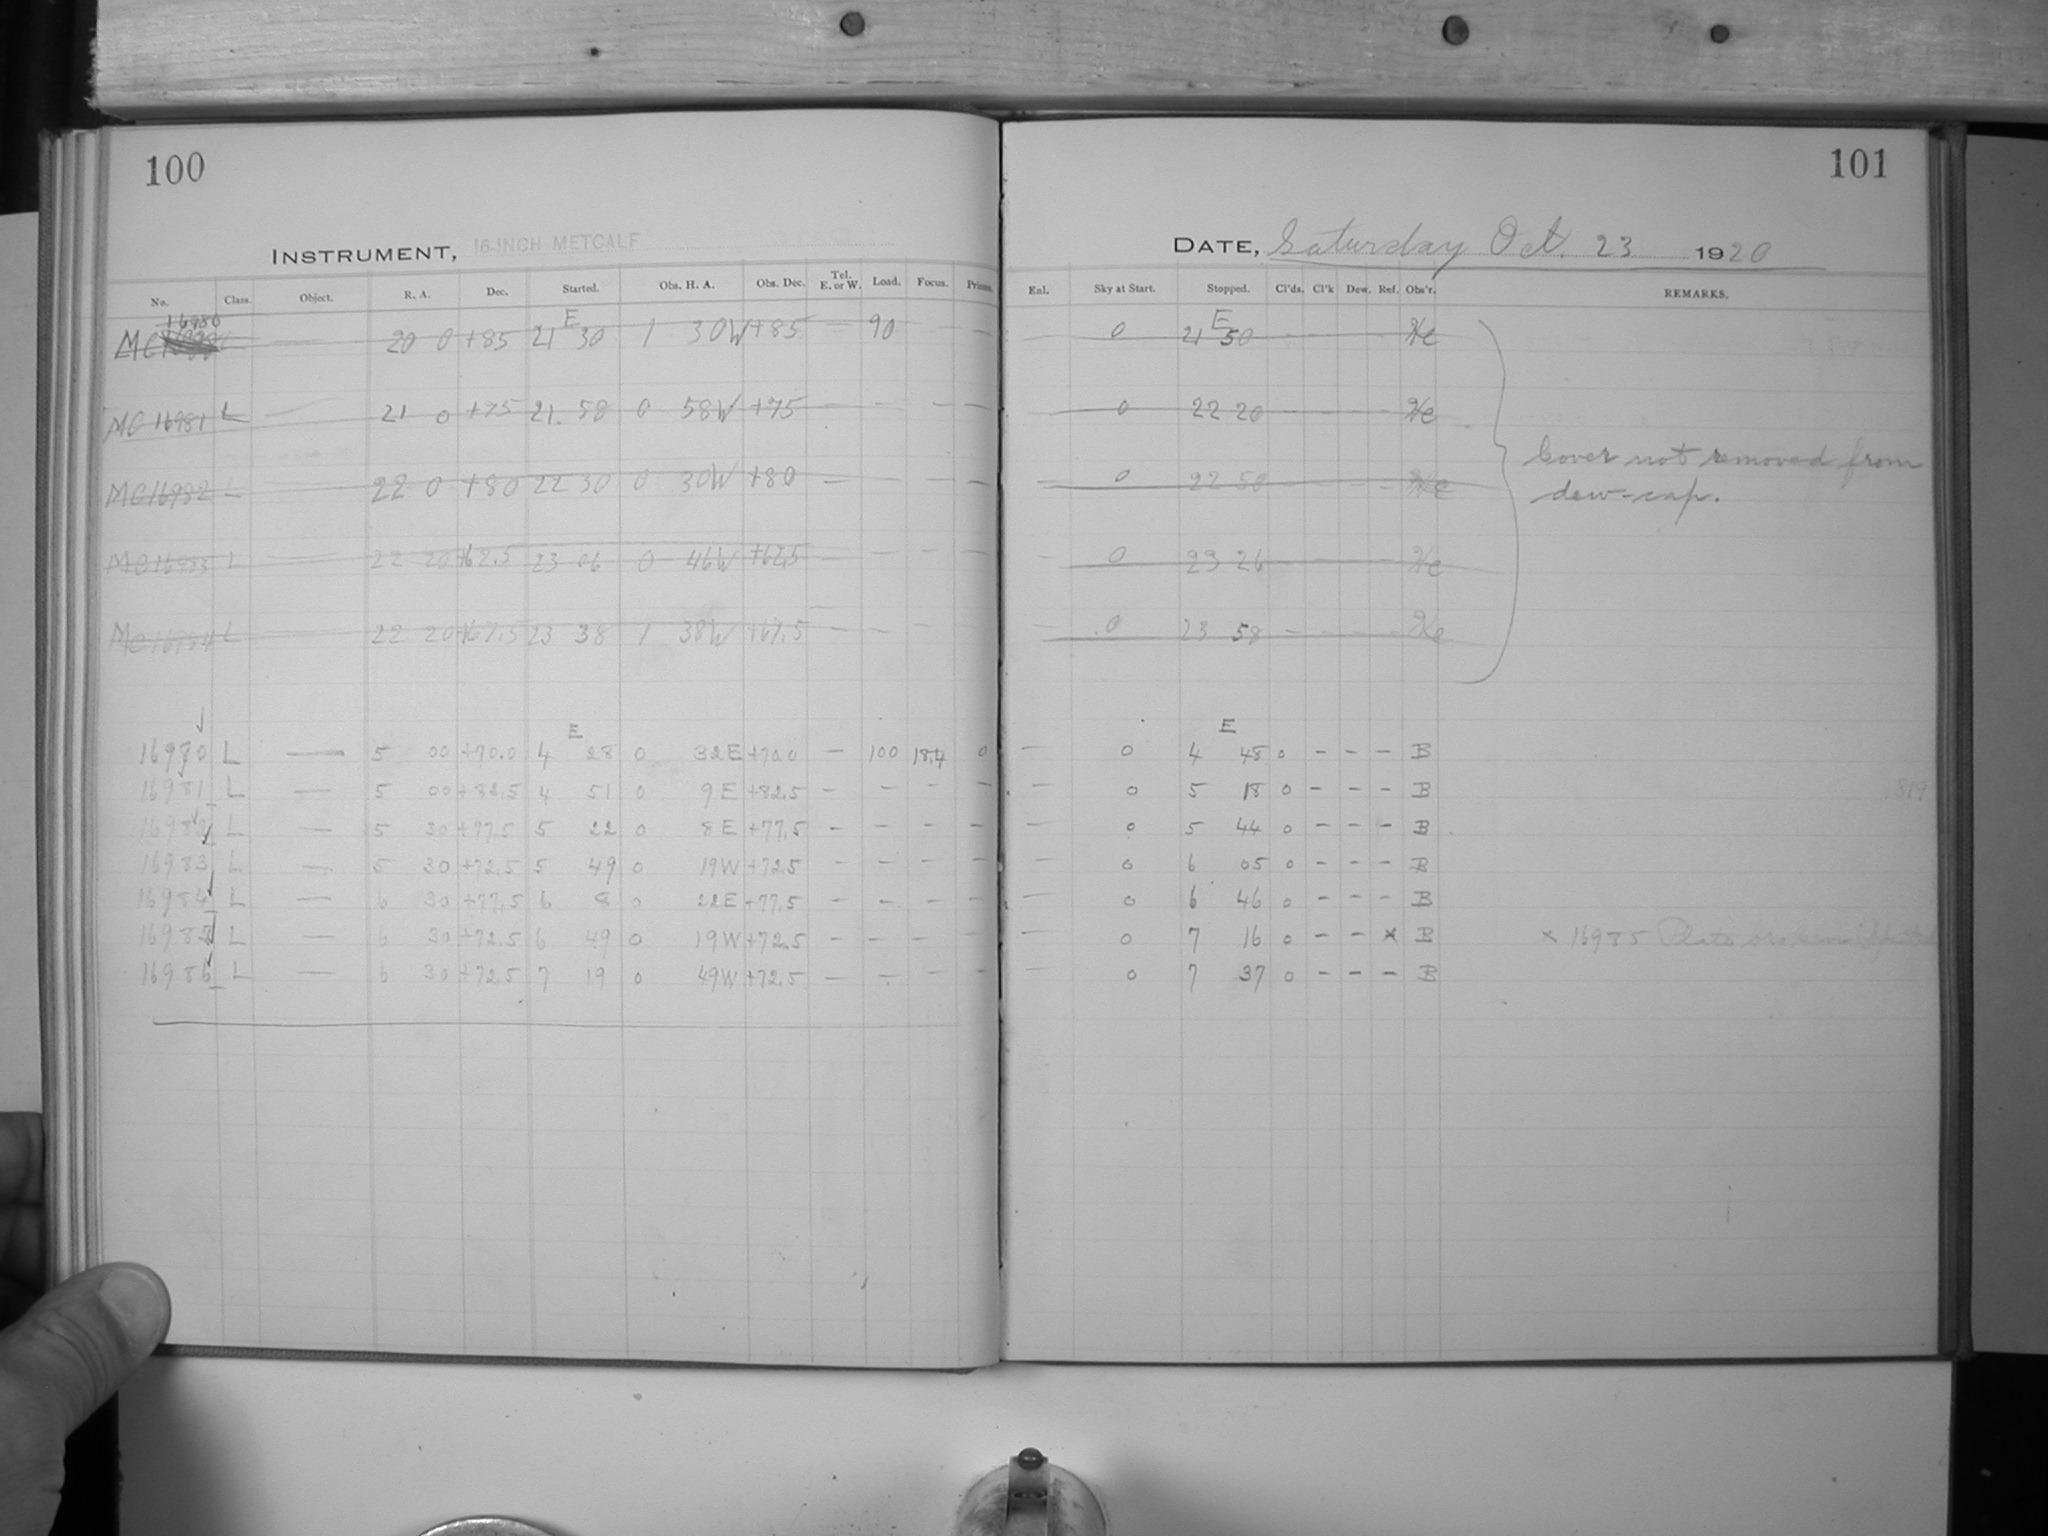 100
101
INSTRUMENT, 16-INCH METCALF
DATE, Saturday Oct. 23 1920
No. Class. Object. R. A. Dec. Started. Obs. H. A. Obs. Dec. Tel. E. or W. Load. Focus. Prisms. Enl. Sky at Start. Stopped. Cl'ds. Cl'k Dew. Ref. Obs'r. REMARKS.
16980 E E
MC L — 20 0 +85 21 30 1 30W +85 — 90 — — — 0 21 50 - - - - He
MC 16981 L — 21 0 +75 21. 58 0 58W +75 — — — — — 0 22 20 - - - - He
Cover not removed from
MC16982 L — 22 0 +80 22 30 0 30W +80 — — — — — 0 22 50 - - - - He
dew-cap.
MC16983 L — 22 20 +62.5 23 06 0 46W +62.5 — — — — — 0 23 26 - - - - He
MC16984 L — 22 20 +67.5 23 38 1 38W +67.5 — — — — — 0 23 58 - - - - He
E E
16980 L — 5 00 +70.0 4 28 0 32E +70.0 — 100 18.4 0 — 0 4 48 0 - - - B
16981 L — 5 00 +82.5 4 51 0 9E +82.5 - - - - — 0 5 18 0 - - - B
819
16982 L — 5 30 +77.5 5 22 0 8E +77.5 - - - - — 0 5 44 0 - - - B
16983 L — 5 30 +72.5 5 49 0 19W +72.5 - - - - — 0 6 05 0 - - - B
16984 L — 6 30 +77.5 6 8 0 22E +77.5 - - - - — 0 6 46 0 - - - B
16985 L — 6 30 +72.5 6 49 0 19W +72.5 - - - - — 0 7 16 0 - - x B x 16985 Plate broken
16986 L — 6 30 +72.5 7 19 0 49W +72.5 - - - - — 0 7 37 0 - - - B